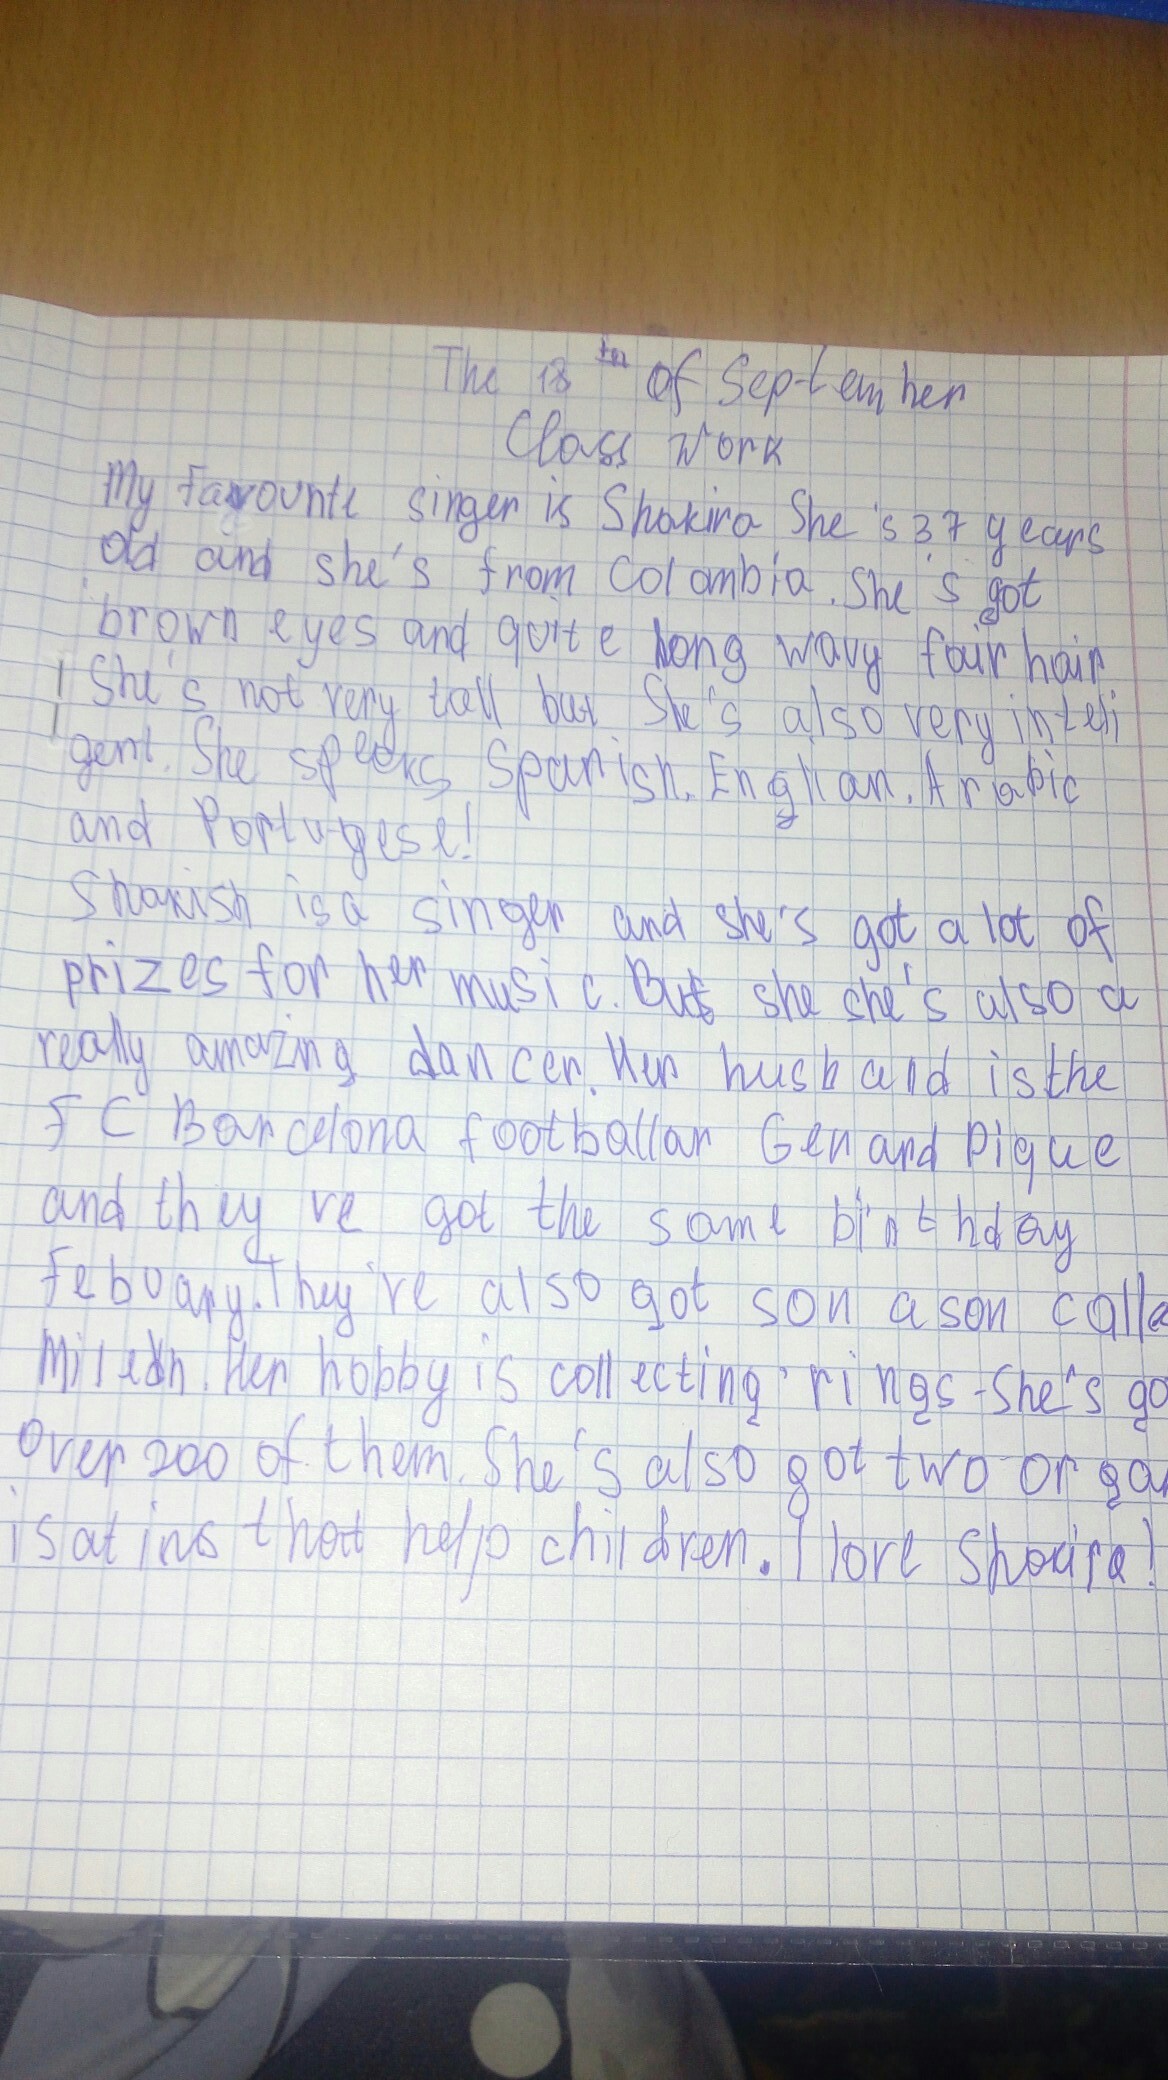 The 18th of September
Class Work
My favourite singer is Shakira She's 37 years
old and she's from Colombia. She's got
brown eyes and quite long wavy fair hair
She's not very tall but She's also very inteli
gent. She speeks Spanish, Englian, Arabic
and Portugese!
Shakish is a singer and she's got a lot of
prizes for her music. But she she's also a
really amazing dancer. Her husband is the
FC Barcelona footballar Gerard Pique
and they ve got the same birthday
Febuary. They're also got son a son calle
Miledn. Her hobby is collecting rings - She's go
over 200 of them. She's also got two organ
isatins that help children. I love Shakira!